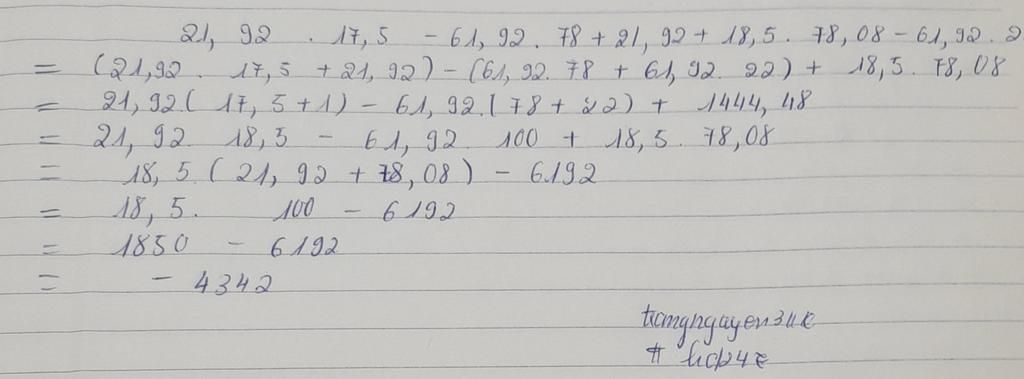 21, 92 . 17, 5 - 61, 92. 78 + 21, 92 + 18, 5. 78, 08 - 61, 92. 2
= (21,92. 17, 5 + 21, 92) - (61, 92. 78 + 61, 92. 22) + 18, 5. 78, 08
= 21, 92 ( 17, 5 + 1) - 61, 92. ( 78 + 22) + 1444, 48
= 21, 92. 18, 5 - 61, 92 100 + 18, 5. 78,08
= 18, 5 ( 21, 92 + 78, 08) - 6192
= 18, 5. 100 - 6192
= 1850 - 6192
= - 4342